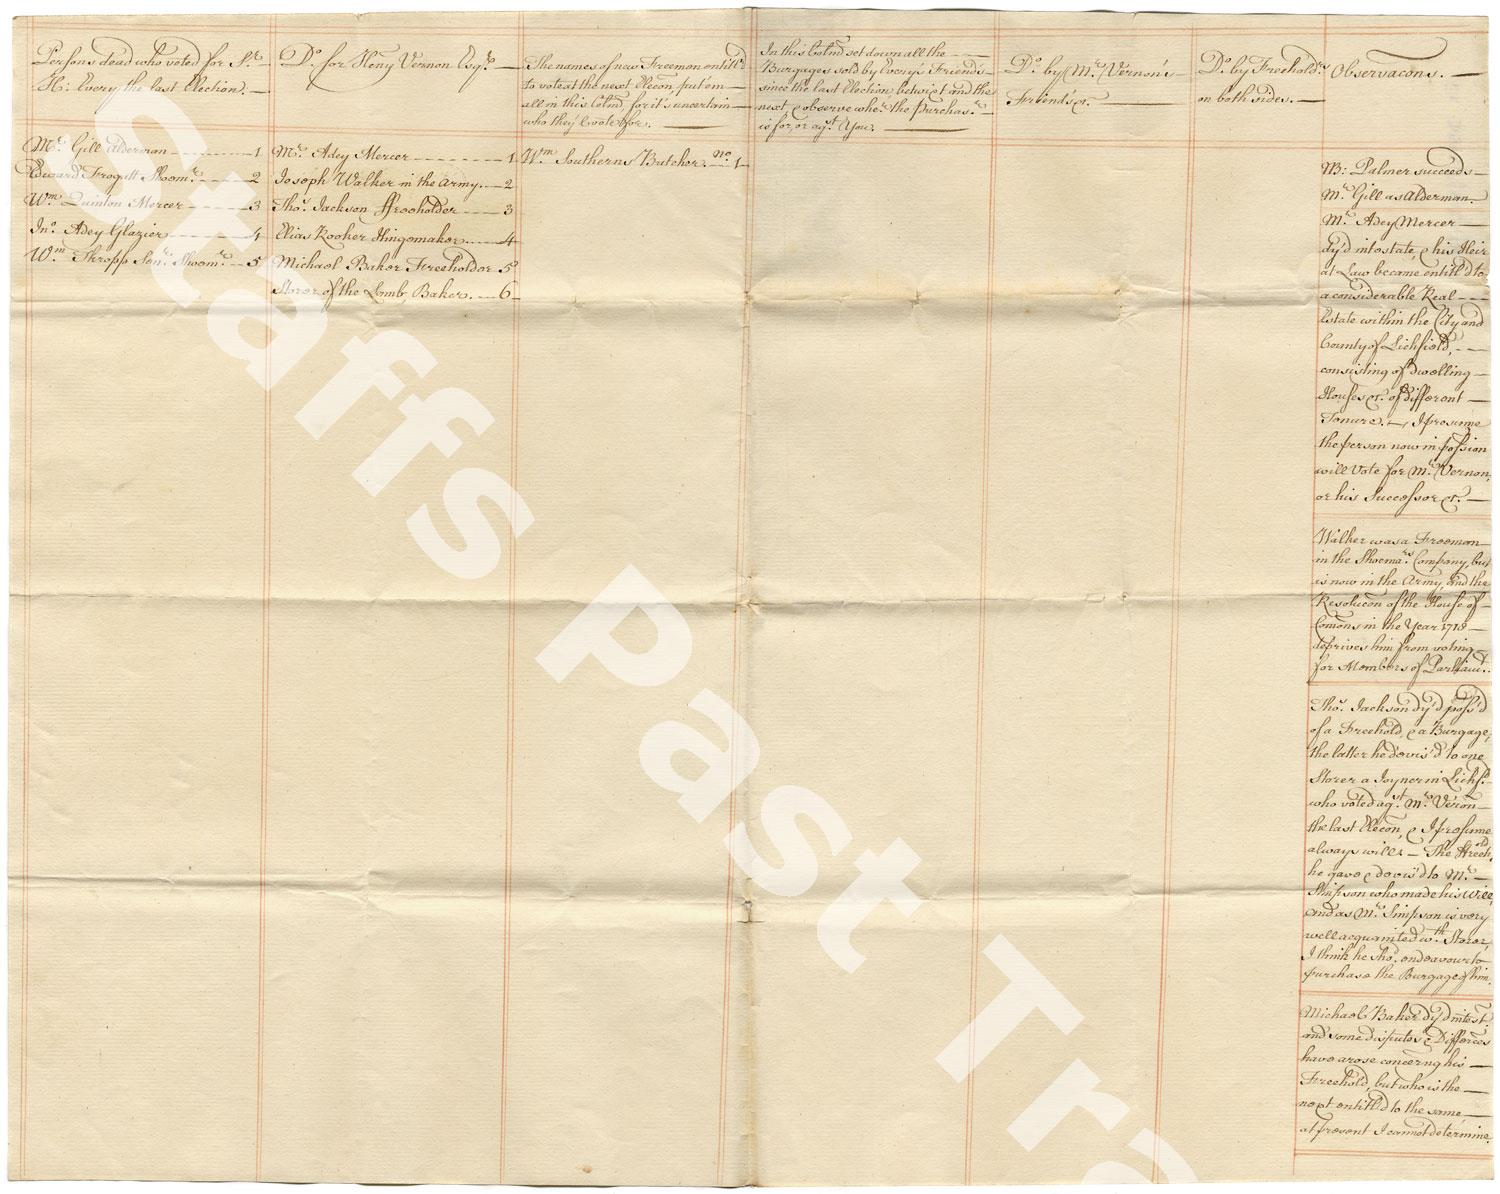 Persons dead who voted for Sr.
H: Every the last Election.
Mr. Gill Alderman 1
Edward Frogatt Shoomr. 2
Wm. Quinton Mercer 3
Jno. Adey Glazier 4
Wm. Thropp Senr. Shoomr. 5
Do. for Heny Vernon Esqr.
Mr. Adey Mercer 1
Joseph Walker in the Army. 2
Tho. Jackson ffreeholder 3
Elias Rooker Hingemaker 4
Michael Baker Freeholder 5
Storer of the Lamb, Baker. 6
The names of new Freemen entitl'd
to vote at the next Elecon, put em
all in this Colmn, for it's uncertain
who they'l vote for.
Wm. Southerns Butcher. no. 1
In this Colmn set down all the
Burgages sold by Every's Friends
since the last Election betwixt and the
next & observe wher. the Purchasr.
is for, or agst. You.
Do. by Mr. Vernon's
Friends &c.
Do. by Freeholdrs.
on both sides.
Observacons.
Mr: Palmer succeeds
Mr. Gill as Alderman.
Mr. Adey Mercer
dy'd intestate, & his Heir
at Law became entitl'd to
a considerable Real
Estate within the City and
County of Lichfield,
consisting of Dwelling
Houses &c. of different
Tenure. I presume
the person now in possion
will Vote for Mr. Vernon,
or his Successor &c.
Walker was a Freeman
in the Shoemars. Company, but
is now in the Army, and the
Resolucon of the House of
Comons in the Year 1718
deprives him from voting
for Members of Parliamt.
Tho. Jackson dy'd poss'd
of a Freehold, & a Burgage,
the latter he devis'd to one
Storer a Joyner in Lichf.
who voted agst. Mr. Vernon
the last Elecon, & I presume
always will. The Freehold
he gave & devis'd to Mr.
Simpson who made his Will,
and as Mr. Simpson is very
well acquainted wth. Storer,
I think he sho. endeavour to
purchase the Burgage of him.
Michael Baker dy'd intest.
and some disputes & Differces
have arose concerng his
Freehold, but who is the
next entitl'd to the same
at present I cannot determine.
Staffs Past Tra